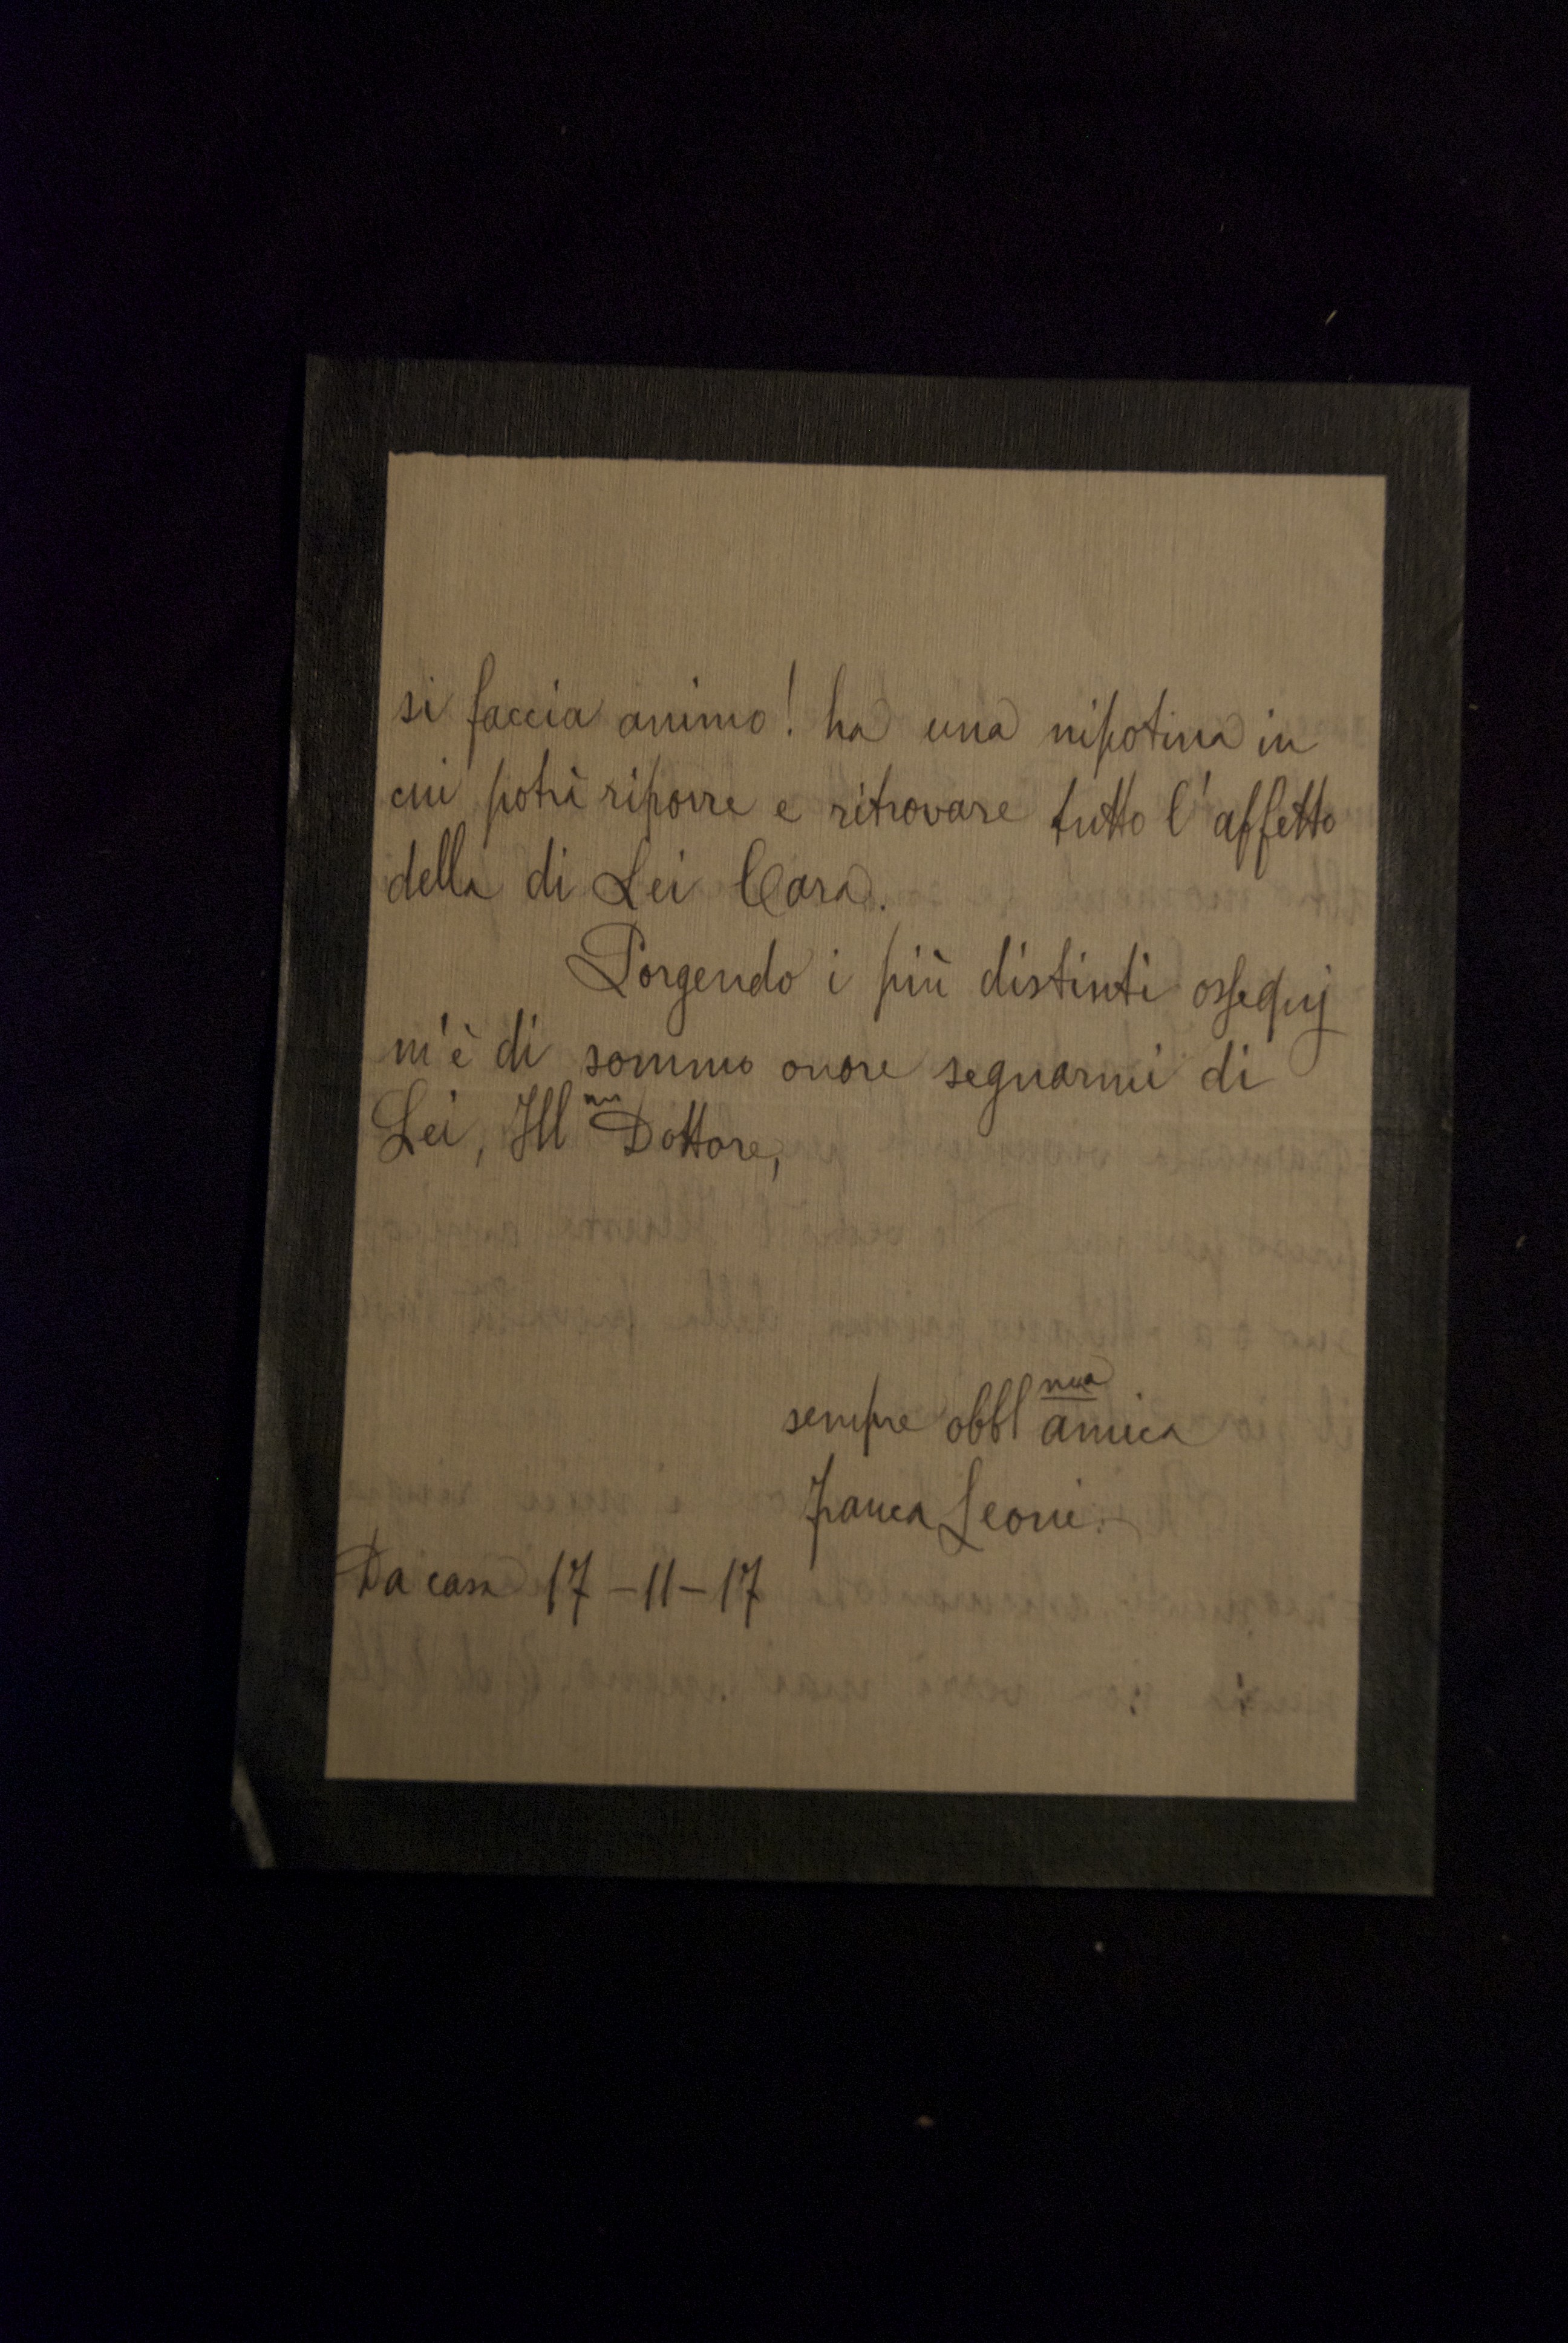 si faccia animo! ha una nipotina in
cui potrà riporre e ritrovare tutto l'affetto
della di Lei Cara.
Porgendo i più distinti ossequj
m'è di sommo onore segnarmi di
Lei, Ill mo Dottore,
sempre obbl ma amica
Franca Leoni.
Da casa 17-11-17